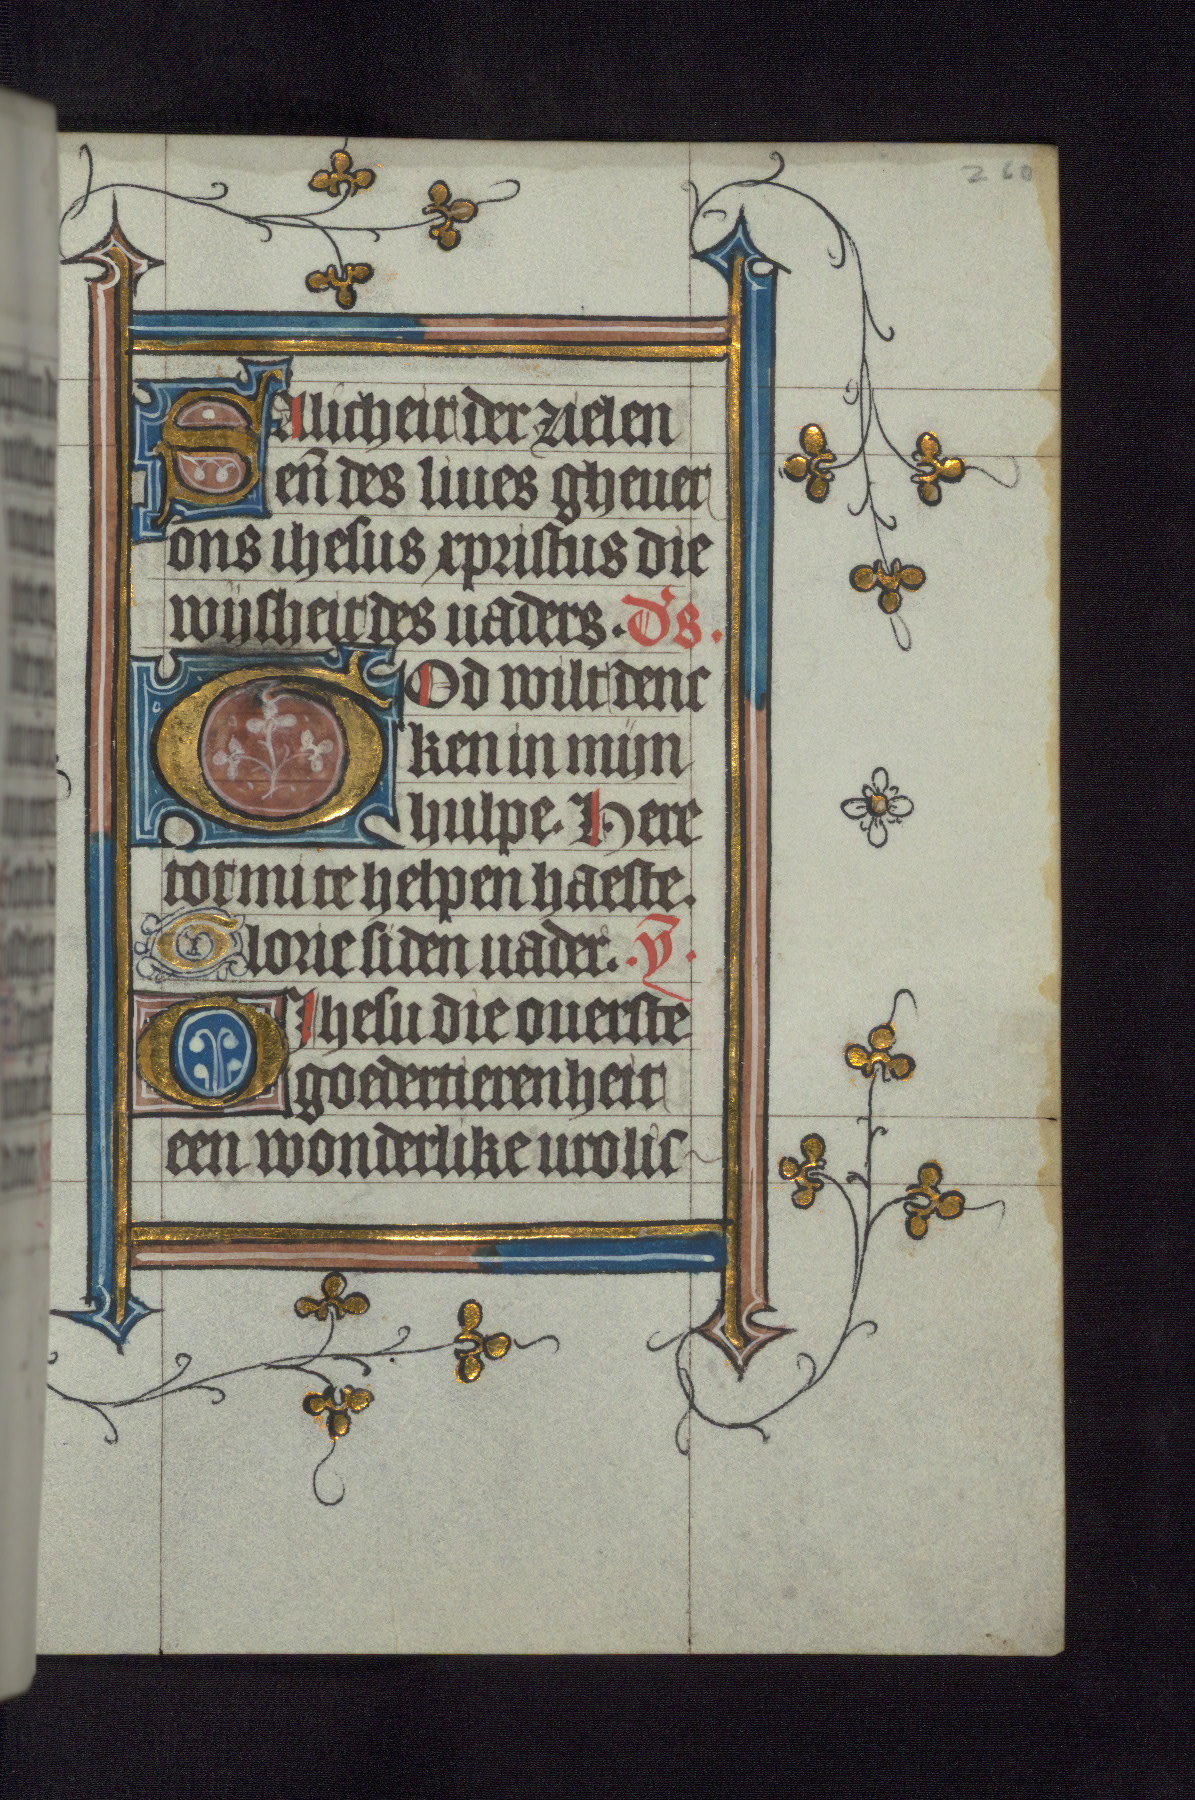 260
Sallicheit der zielen
eñ des liues gheuet
ons ihesus xpristus die
wijsheit des uaders. d's.
God wilt denc
ken in mijn
hulpe. Here
tot mi te helpen haeste.
Glorie si den uader. .ỹ.
O Ihesu die ouerste
goedertierenheit
een wonderlike urolic